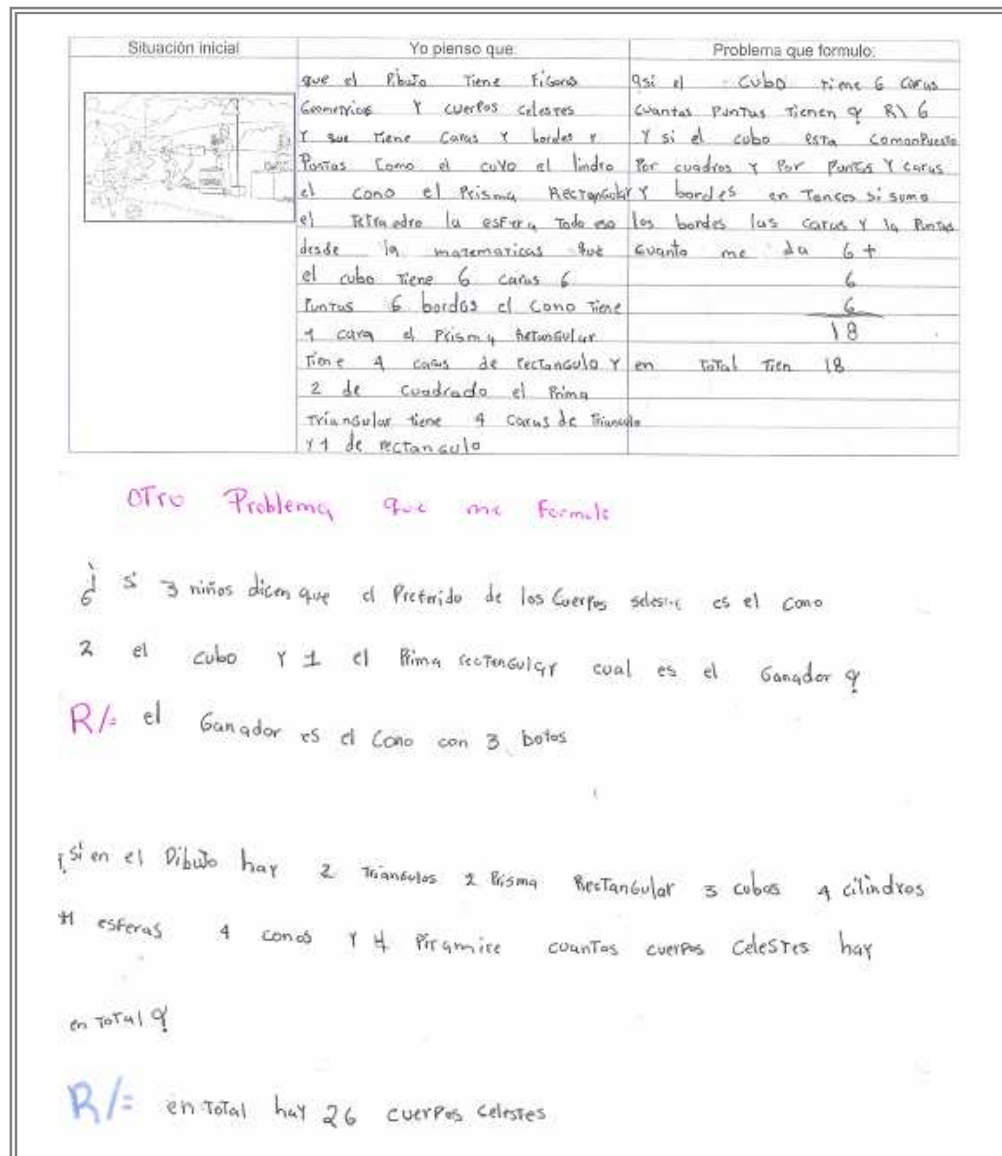 Situación inicial
Yo pienso que:
que el Dibujo Tiene Figuras
Geometricas Y cuerpos celestes
Y que Tiene Caras Y bordes Y
Puntas Como el cuvo el lindro
el cono el Prisma Rectangular
el Tetraedro la esfera Todo eso
desde la matematicas que
el cubo Tiene 6 caras 6
Puntas 6 bordas el Cono Tiene
1 cara el Prisma Retangular
Tiene 4 caras de rectangulo Y
2 de cuadrado el Prima
Triangular tiene 4 Caras de Triangulo
Y 1 de rectangulo
Problema que formulo:
si el Cubo tiene 6 caras
cuantas Puntas Tienen ? R\ 6
Y si el cubo esta
Por cuadros Y Por Puntas Y caras
Y bordes en Tonces si sumo
los bordes las caras Y la Puntas
cuanto me da 6 +
6
6
18
en ToTal Tien 18
OTro Problema que me Formule
¿ si 3 niños dicen que el Preferido de los Cuerpos es el cono
2 el cubo Y 1 el Prima recTangular cual es el Ganador ?
R/= el Ganador es el Cono con 3 botos
¿ si en el Dibujo hay 2 Triangulos 2 Prisma RecTangular 3 cubos 4 cilindros
esferas 4 conos Y 4 cuantos cuerpos CelesTes hay
en ToTal ?
R/= en ToTal hay 26 cuerpos celesTes